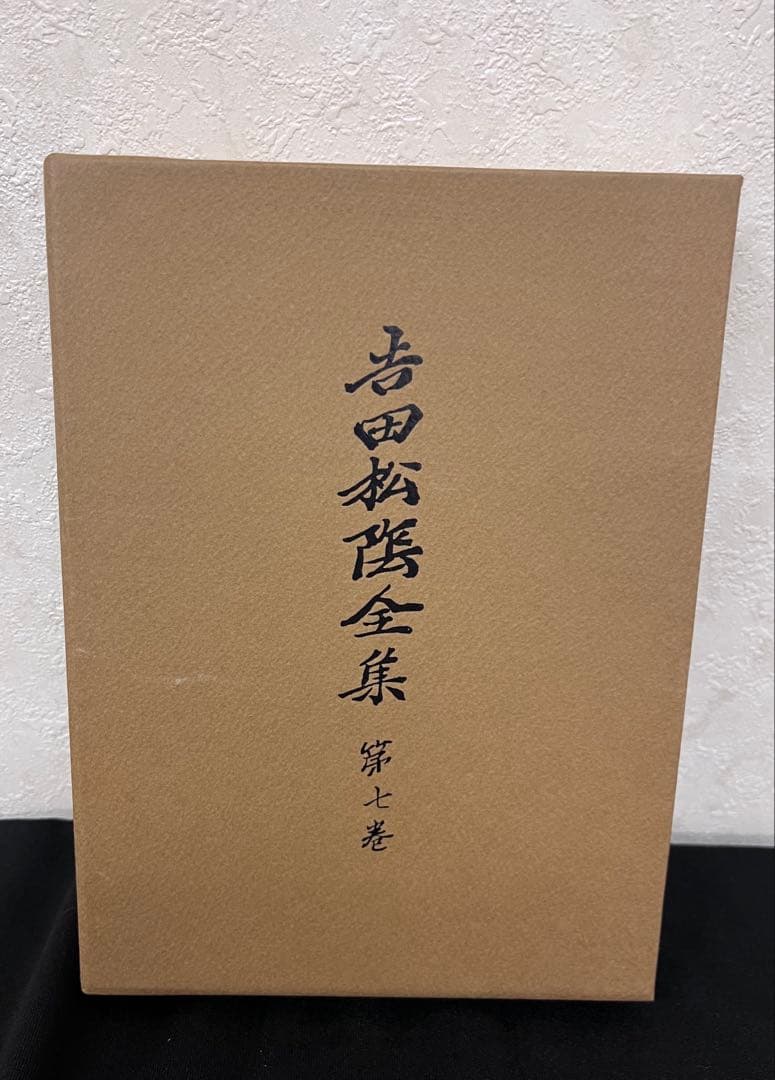 吉田松陰全集 第七巻